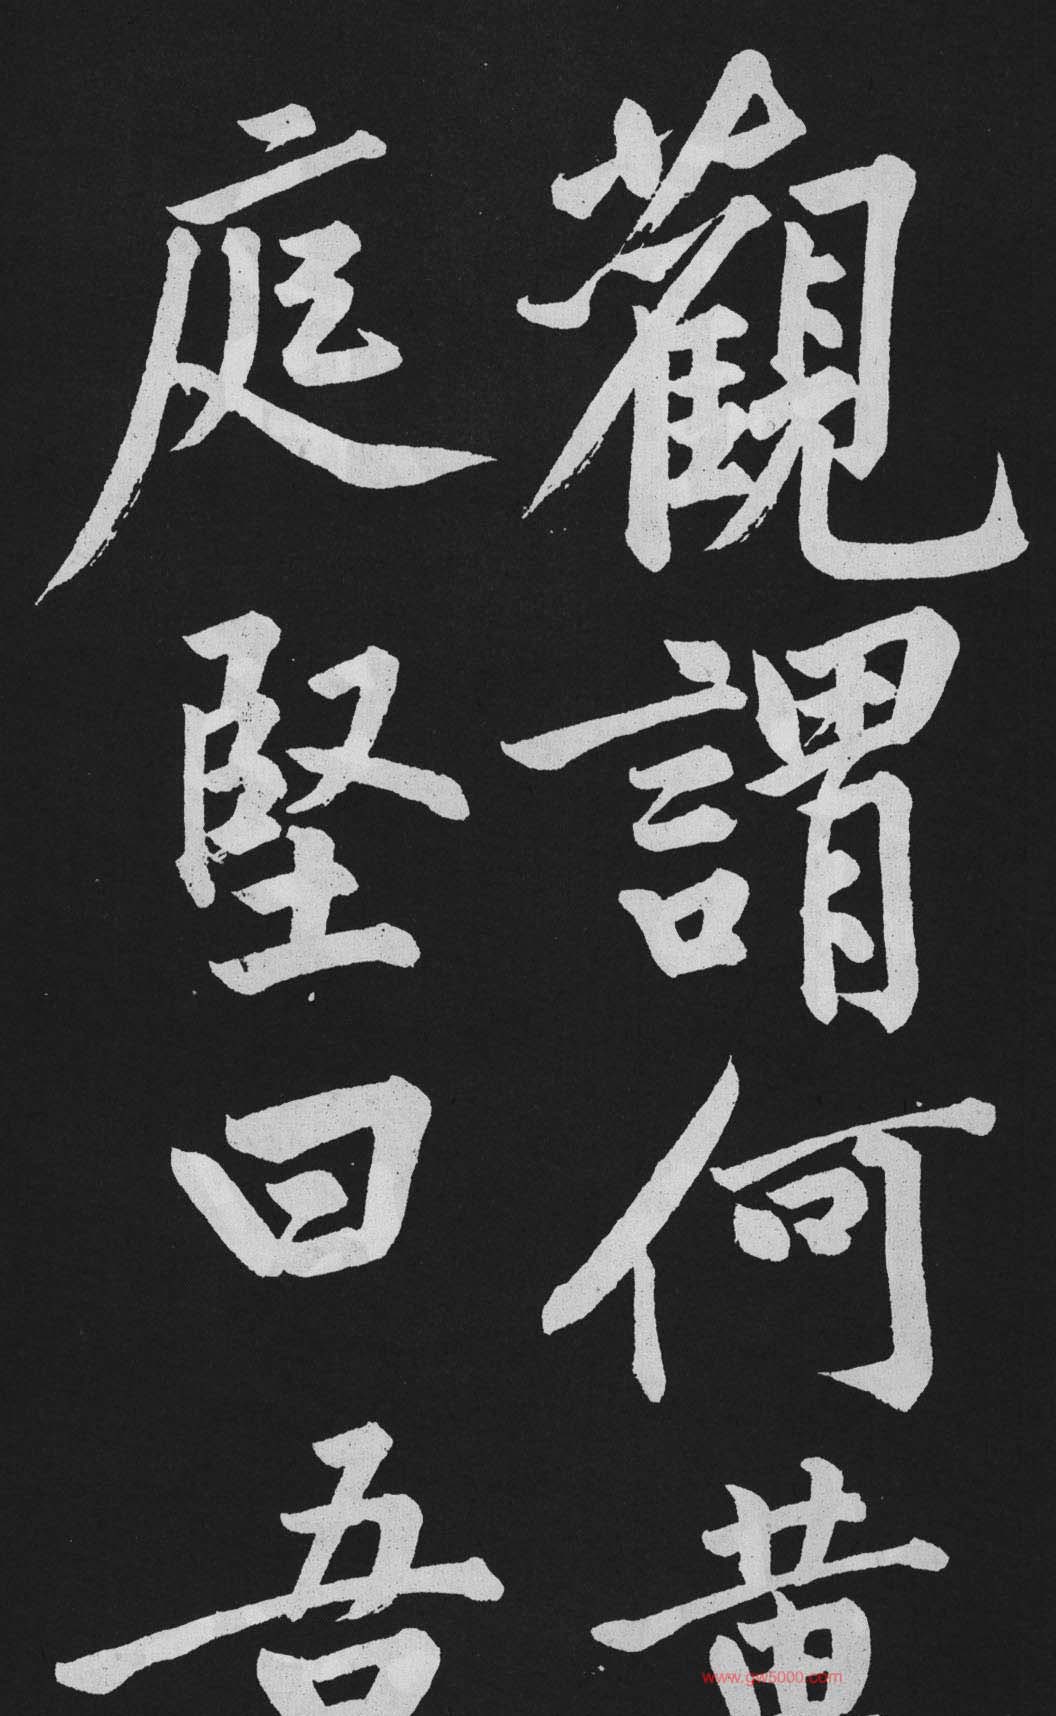 觀謂何黄
庭堅曰吾
www.gw5000.com